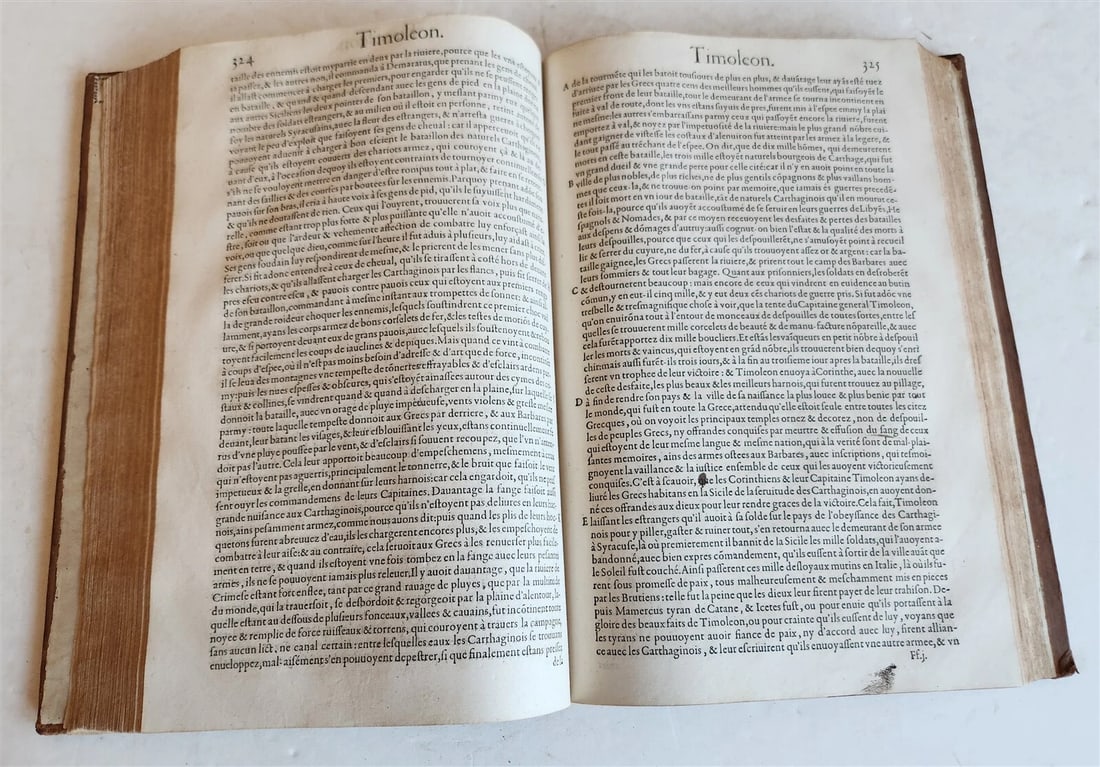 324
Timoleon.
taille des ennemis estoit mypartie en deux par la riuiere, pource que les vns estoyent
ia passez, & les autres non, il commanda à Demaratus, que prenant les gens de cheual
il allast commencer à charger les premiers, pour engarder qu'ils ne se peussent
en bataille, & quand & quand descendant auec les gens de pied en la plaine
aux autres Siciliens les deux pointes de son bataillon, y meslant parmy eux
nombre des soldats estrangers, & au milieu où il estoit en personne, retint
soy les naturels Syracusains, auec la fleur des estrangers, & n'arresta guere à
voyant le peu d'exploit que faisoyent ses gens de cheual: car il apperceuoit qu'ils
pouuoyent aduenir à charger à bon escient le bataillon des naturels Carthaginois
à cause qu'ils estoyent couuerts des chariots armez, qui couroyent çà & là
uant d'eux, à l'occasion dequoy ils estoyent contraints de tourner continuellement
s'ils ne se vouloyent mettre en danger d'estre rompus tout à plat, & faire en
nant des saillies & des courses par boutees sur les ennemis. Parquoy prenant adonc
pauois sur son bras, il cria à haute voix à ses gens de pied, qu'ils le suyuissent hardiment
& qu'ils ne doutassent de rien. Ceux qui l'ouyrent, trouuerent sa voix plus que
relle, comme estant trop plus forte & plus puissante qu'elle n'auoit accoustumé
stre, soit ou que l'ardeur & vehemente affection de combatre luy enforçast ainsi
voix, ou que quelque dieu, comme sur l'heure il fut aduis à plusieurs, luy aidast à
Ses gens soudain luy respondirent de mesme, & le prierent de les mener sans plus
ferer. Si fit adonc entendre à ceux de cheual, qu'ils se tirassent à costé hors de
les chariots, & qu'ils allassent charger les Carthaginois par les flancs, puis fit serrer
pres escu contre escu, & pauois contre pauois ceux qui estoyent aux premiers
de son bataillon, commandant à mesme instant aux trompettes de sonner: & ainsi
la de grande roideur choquer les ennemis, lesquels soustindrent ce premier choc
lamment, ayans les corps armez de bons corselets de fer, & les testes de morions de cuy-
ure, & si portoyent deuant eux de grans pauois, auec lesquels ils soustenoyent & rebou-
toyent facilement les coups de iauelines & de piques. Mais quand ce vint à combatre
à coups d'espee, où il n'est pas moins besoin d'adresse & d'art que de force, incontinent
il se leua des montagnes vne tempeste de tonnerres effrayables & d'esclairs ardens
my: puis les nues espesses & obscures, qui s'estoyent amassees autour des cymes des
staux & collines, se vindrent quand & quand à descharger en la plaine, sur laquelle se
donnoit la bataille, auec vn orage de pluye impetueuse, vents violens & gresle meslee
parmy: toute laquelle tempeste donnoit aux Grecs par derriere, & aux Barbares par
deuant, leur batant les visages, & leur esblouissant les yeux, estans continuellement
rus d'vne pluye poussee par le vent, & d'esclairs si souuent recoupez, que l'vn n'atten-
doit pas l'autre. Cela leur apportoit beaucoup d'empeschemens, mesmement à ceux
qui n'estoyent pas aguerris, principalement le tonnerre, & le bruit que faisoit le vent
impetueux & la gresle, en donnant sur leurs harnois: car cela engardoit, qu'ils ne peus-
sent ouyr les commandemens de leurs Capitaines. Dauantage la fange faisoit aussi
grande nuisance aux Carthaginois, pource qu'ils n'estoyent pas deliures en leurs har-
nois, ains pesamment armez, comme nous auons dit: puis quand les plis de leurs hoc-
quetons furent abreuuez d'eau, ils les chargerent encores plus, & les empeschoyent de
combatre à leur aise: & au contraire, cela seruoit aux Grecs à les renuerser plus facile-
ment en terre, & quand ils estoyent vne fois tombez en la fange auec leurs pesantes
armes, ils ne se pouuoyent iamais plus releuer. Il y auoit dauantage, que la riuiere de
Crimese estant fort enflee, tant par ce grand rauage de pluyes, que par la multitude
du monde, qui la trauersoit, se desbordoit & regorgeoit par la plaine d'alentour, la-
quelle estant au dessous de plusieurs fonceaux, vallees & cauains, fut incontinent toute
noyee & remplie de force ruisseaux & torrens, qui couroyent à trauers la campagne,
sans aucun lict, ne canal certain: entre lesquelles eaux les Carthaginois se trouuans
enueloppez, mal-aisément s'en pouuoyent depestrer, si que finalement estans pressez
de la
Timoleon.
325
A de la tourmẽte qui les batoit tousiours de plus en plus, & dauãtage leur ayãs esté tuez
d'arriuee par les Grecs quatre cens des meilleurs hommes qu'ils eussent, qui faisoyẽt le
premier front de leur bataille, tout le demeurant de l'armee se tourna incontinent en
fuite à val de route, dont les vns estans suyuis de pres, furent mis à l'espee emmy la plai
ne mesme: les autres s'embarrassans parmy ceux qui passoyẽt encore la riuiere, furent
emportez à val, & noyez par l'impetuosité de la riuiere: mais le plus grand nõbre cui-
dant gaigner de vistesse les costaux d'alenuiron fut atteint par les armez à la legere, &
le tout passé au trẽchant de l'espee. On dit, que de dix mille hõmes, qui demeurerent
morts en ceste bataille, les trois mille estoyẽt naturels bourgeois de Carthage, qui fut
vn grand dueil & vne grande perte pour celle cité: car il n'y en auoit point en toute la
B ville de plus nobles, de plus riches, ne de plus gentils cõpagnons & plus vaillans hom-
mes que ceux-la, & ne trouue-on point par memoire, que iamais és guerres precedẽ-
tes il soit mort en vn iour de bataille, tãt de naturels Carthaginois qu'il en mourut ce-
ste fois-la, pource qu'ils auoyẽt accoustumé de se seruir en leurs guerres de Libyẽs, He
spagnols & Nomades, & par ce moyen receuoyent les desfaites & pertes des batailles
aux despens & dõmages d'autruy: aussi cognut-on bien l'estat & la qualité des morts à
leurs despouilles, pource que ceux qui les despouillerẽt, ne s'amusoyẽt point à recueil
lir & serrer du cuyure, ne du fer, à cause qu'ils trouuoyent assez or & argent: car la ba-
taille gaignee, les Grecs passerent la riuiere, & prirent tout le camp des Barbares auec
leurs sommiers & tout leur bagage. Quant aux prisonniers, les soldats en desroberẽt
C & destournerent beaucoup: mais encore de ceux qui vindrent en euidence au butin
cõmun, y en eut-il cinq mille, & y eut deux cẽs chariots de guerre pris. Si fut adõc vne
tresbelle & tresmagnifique chose à voir, que la tente du Capitaine general Timoleon,
qu'on enuirõna tout à l'entour de monceaux de despouilles de toutes sortes, entre les
quelles se trouuerent mille corcelets de beauté & de manu-facture nõpareille, & auec
cela furẽt apportez dix mille boucliers. Et estãs les vaĩcueurs en petit nõbre à despouil
ler les morts & vaincus, qui estoyent en grãd nõbre, ils trouuerent bien dequoy s'enri
chir: mais aussi furẽt-ils trois iours, & à la fin au troisieme iour apres la bataille, ils dres
serent vn trophee de leur victoire: & Timoleon enuoya à Corinthe, auec la nouuelle
de ceste desfaite, les plus beaux & les meilleurs harnois, qui furent trouuez au pillage,
D à fin de rendre son pays & la ville de sa naissance la plus louee & plus benie par tout
le monde, qui fust en toute la Grece, attendu qu'elle estoit seule entre toutes les citez
Grecques, où on voyoit les principaux temples ornez & decorez, non de despouil-
les de peuples Grecs, ny offrandes conquises par meurtre & effusion du sang de ceux
qui estoyent de leur mesme langue & mesme nation, qui à la verité sont de mal-plai-
santes memoires, ains des armes ostees aux Barbares, auec inscriptions, qui tesmoi-
gnoyent la vaillance & la iustice ensemble de ceux qui les auoyent victorieusement
conquises. C'est à scauoir, que les Corinthiens & leur Capitaine Timoleon ayans de-
liuré les Grecs habitans en la Sicile de la seruitude des Carthaginois, en auoyent don-
né ces offrandes aux dieux pour leur rendre graces de la victoire. Cela fait, Timoleon
E laissant les estrangers qu'il auoit à sa solde sur le pays de l'obeyssance des Carthagi-
nois pour y piller, gaster & ruiner tout, s'en retourna auec le demeurant de son armee
à Syracuse, là où premierement il bannit de la Sicile les mille soldats, qui l'auoyent a-
bandonné, auec bien expres cõmandement, qu'ils eussent à sortir de la ville auãt que
le Soleil fust couché. Ainsi passerent ces mille desloyaux mutins en Italie, là où ils fu-
rent sous promesse de paix, tous malheureusement & meschamment mis en pieces
par les Brutiens: telle fut la peine que les dieux leur firent payer de leur trahison. De-
puis Mamercus tyran de Catane, & Icetes fust, ou pour enuie qu'ils portassent à la
gloire des beaux faits de Timoleon, ou pour crainte qu'ils eussent de luy, voyans que
les tyrans ne pouuoyent auoir fiance de paix, ny d'accord auec luy, firent allian-
ce auec les Carthaginois, & leur escriuirent qu'ils enuoyassent vne autre armee, & vn
Ff.j.